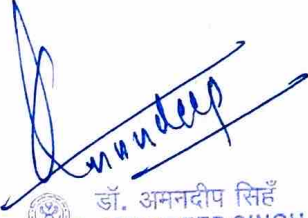 Amandeep
डॉ. अमनदीप सिहँ